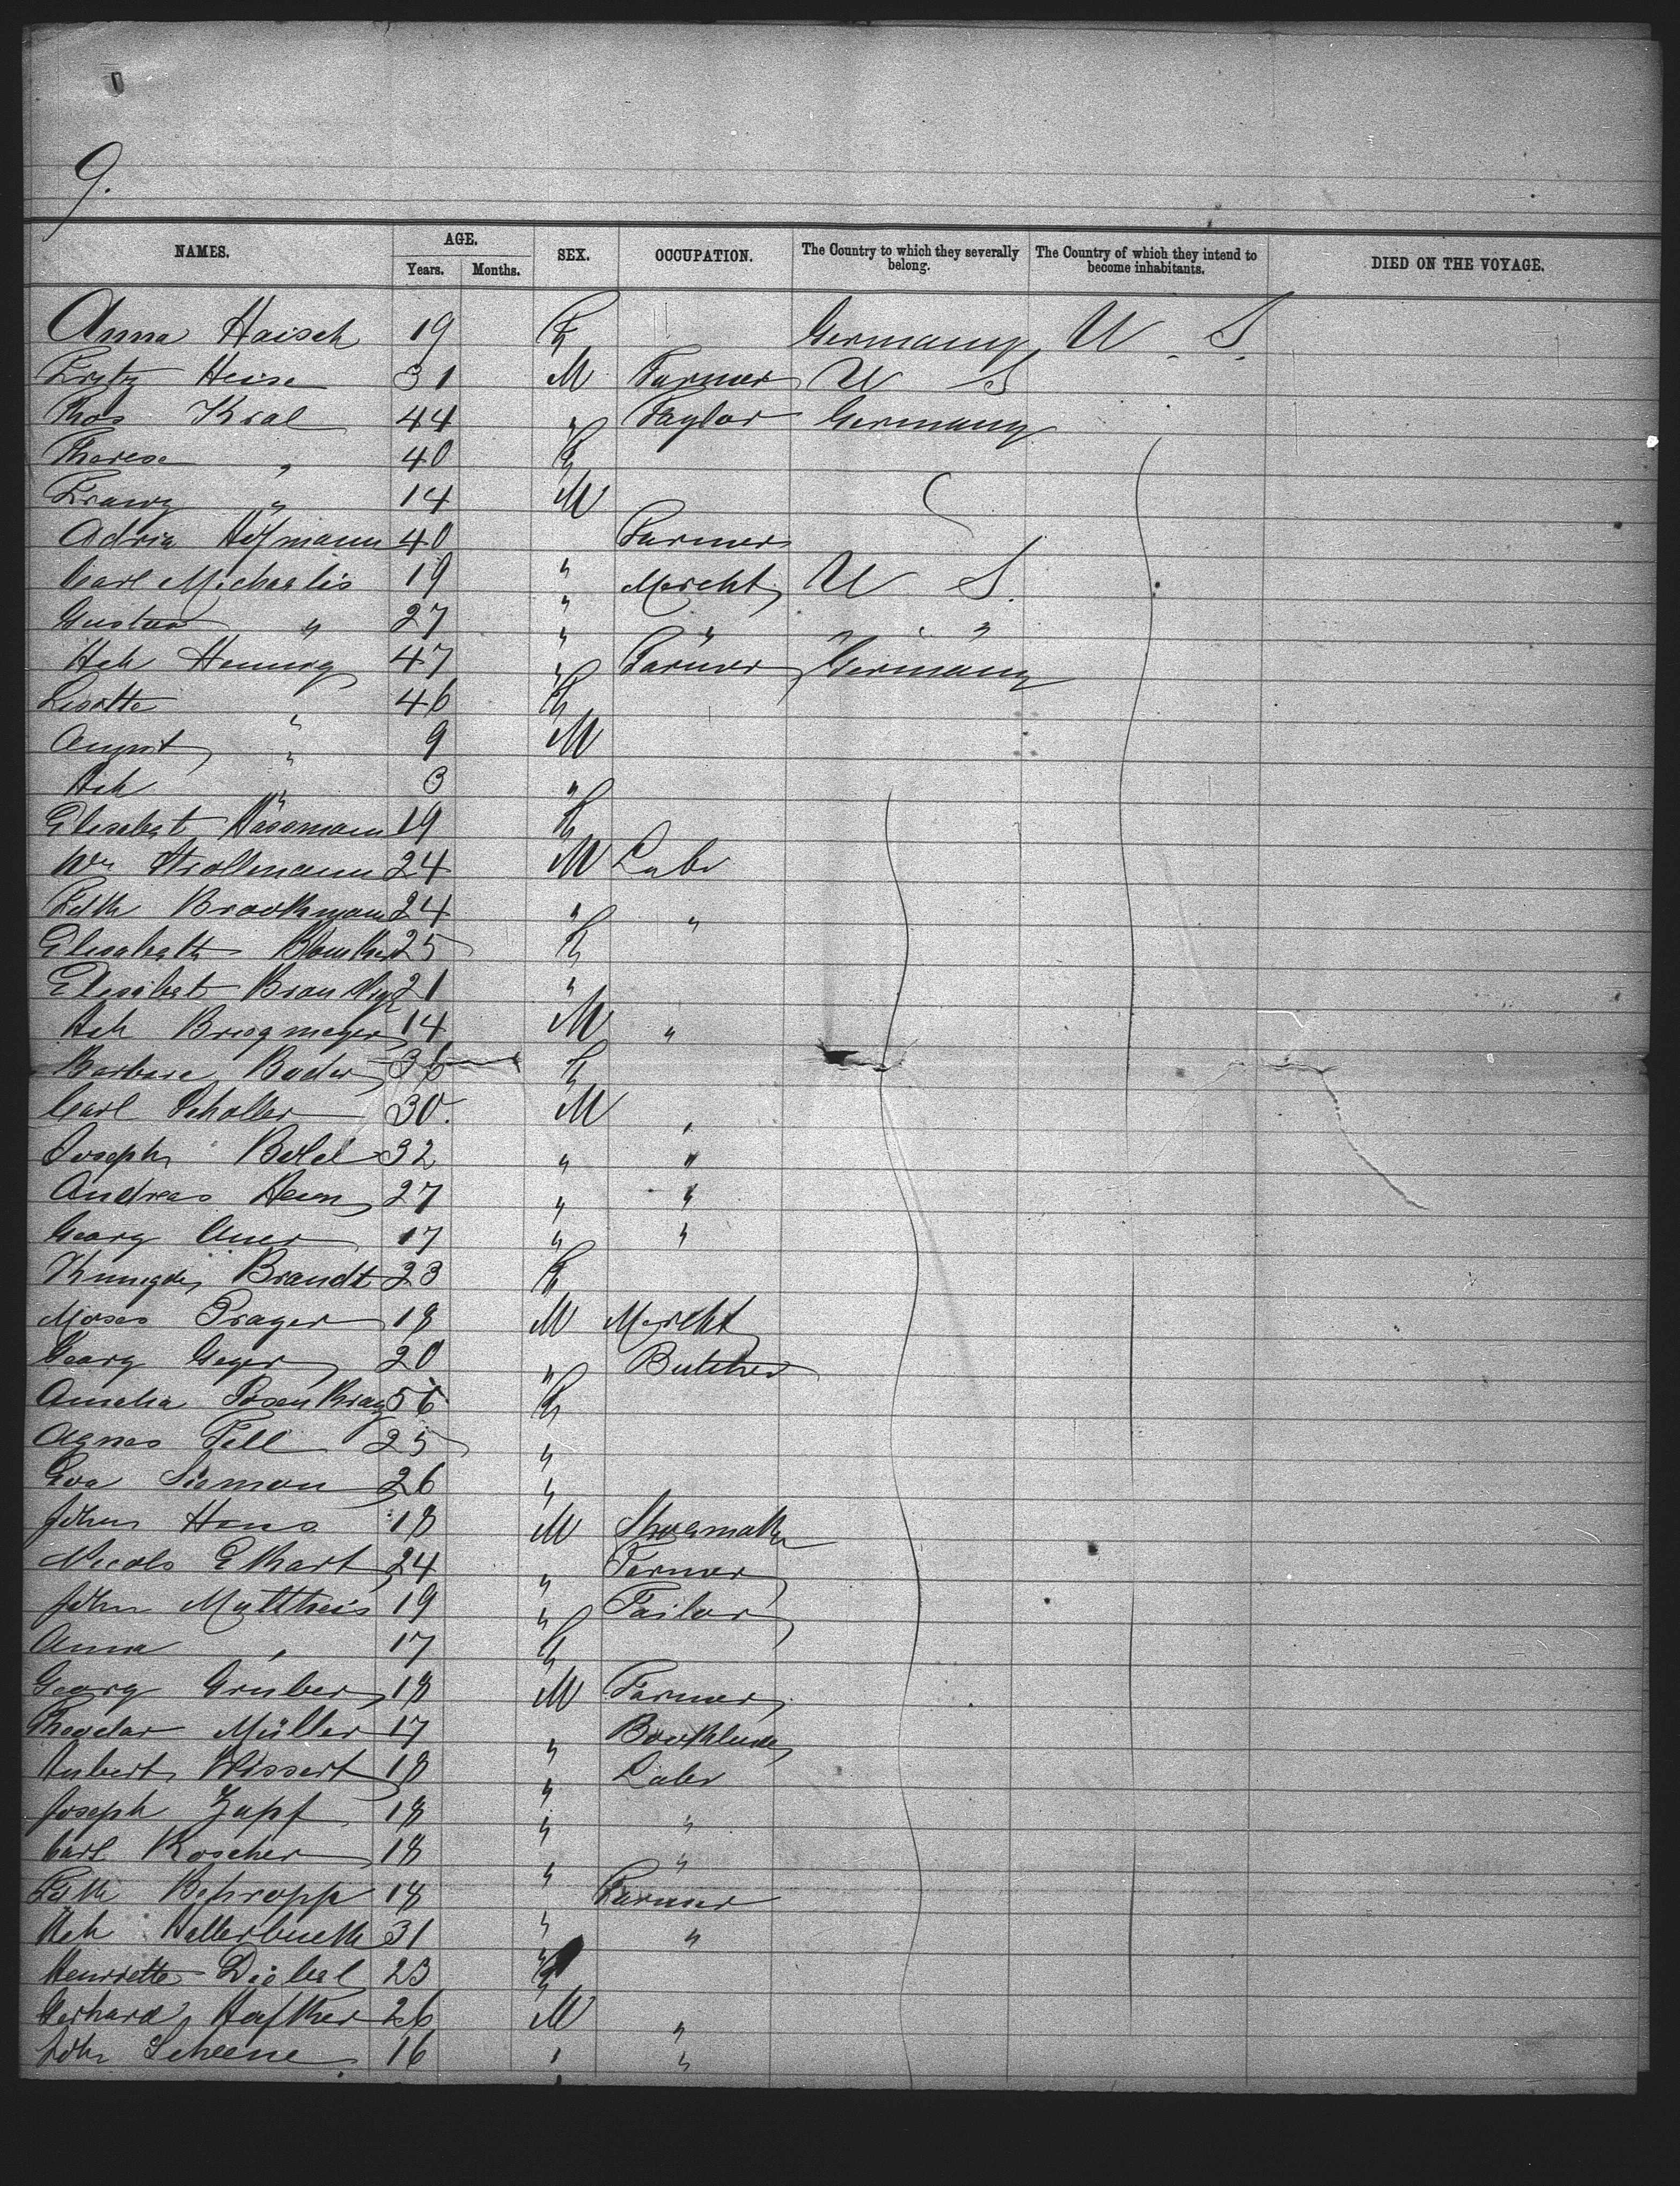 9.
NAMES. AGE. Years. Months. SEX. OCCUPATION. The Country to which they severally belong. The Country of which they intend to become inhabitants. DIED ON THE VOYAGE.
Anna Haisch 19 F Germany U. S.
Heise 31 M Farmer U S
Thos Kral 44 " Taylor Germany
Therese " 40 F
Franz " 14 M
Adria Hofmann 40 " Farmer
Carl Michaelis 19 " Mercht U S.
Gustav " 27 " " " "
Hch Hennig 47 " Farmer Germany
Lisette " 46 F
August " 9 M
Hch " 3 "
Elisabet Hassmann 19 F
Wm Strollmann 24 M Labr
Brookmann 24 " "
Elisabeth 25 F
Elisabet 21 "
Hch Brugmeyer 14 M "
Barbara Bader 36 F
Carl Scholler 30. M "
Joseph 32 " "
Andreas 27 " "
Georg Auer 17 " "
Brandt 23 F
Moses Prager 18 M Mercht
Georg Geyer 20 " Butcher
Amalia 56 F
Agnes Fell 25 "
Eva Siemon 26 "
John 18 M Shoemaker
Nicols Ekhart 24 " Farmer
John Mattheis 19 " Tailor
Anna " 17 F
Georg Gruber 18 M Farmer
Theodor Müller 17 "
Hubert Wissert 18 " Labr
Joseph Zapf 18 " "
Carl Koscher 18 " "
18 " Farmer
Hch 31 " "
Henriette Diebel 23 F
Gerhard 26 M "
Joh. Scheene 16 " "